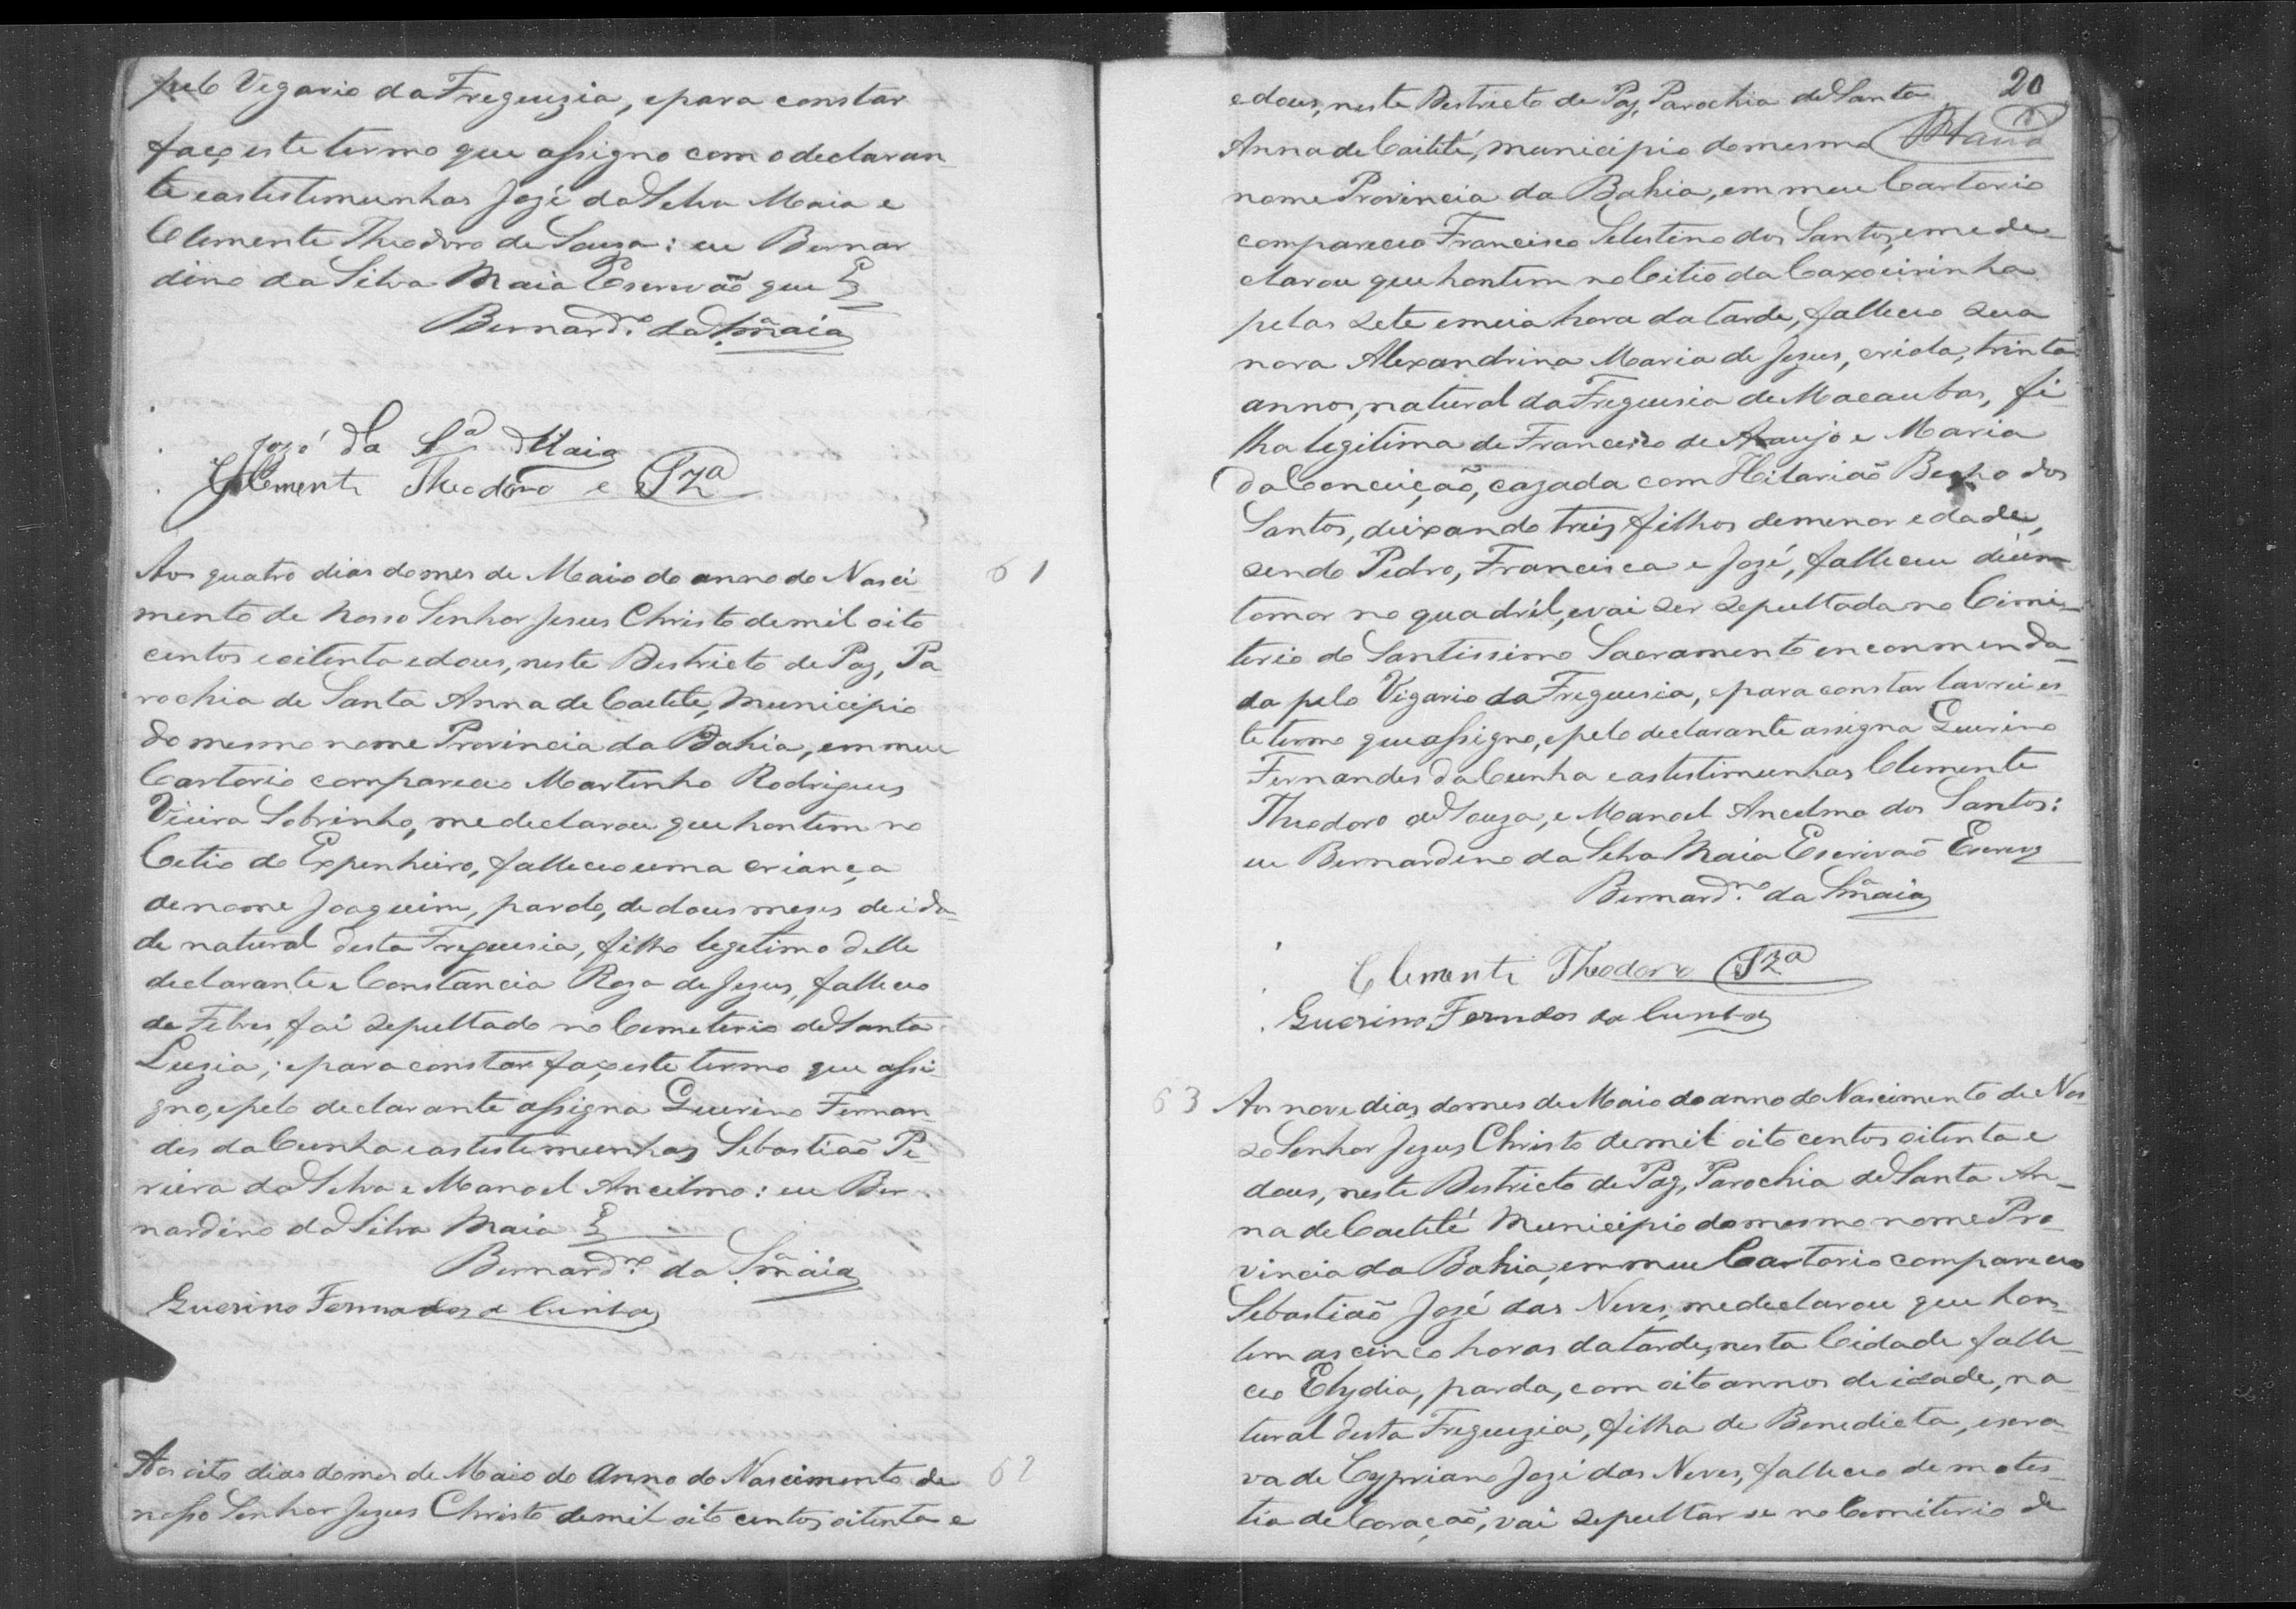 pelo Vigario da Freguezia, e para constar
faço este termo que assigno com o declaran
te e as testimunhas José da Silva Maia e
Clemente Theodoro de Souza: eu Bernar
dino da Silva Maia Escrivaõ que E
Bernard.º da S.ª Maia
José da S.ª Maia
Clemente Theodoro e Sza
61
Aos quatro dias do mes de Maio do anno do Nasci
mento de Nosso Senhor Jesus Christo de mil oito
centos e oitenta e dous, neste Destricto de Paz, Pa
rochia de Santa Anna de Caetité, Municipio
do mesmo nome Provincia da Bahia, em meu
Cartorio compareceo Martinho Rodrigues
Vieira Sobrinho, me declarou que hontem no
Citio do Espinheiro, falleceo uma criança
de nome Joaquim, pardo, de dous mezes de ida-
de natural desta Freguesia, filho legetimo delle
declarante e Constancia Roza de Jezus, falleceo
de Febres, foi sepultado no Cemeterio de Santa
Luzia; e para constar faço este termo que assi
gno, e pelo declarante assigna Guerino Fernan
des da Cunha e as testemunhas Sebastiaõ Pe
reira da Silva e Manoel Ancelmo: eu Ber
nardino da Silva Maia E
Bernard.º da S.ª Maia
Guerino Fernandes da Cunha
62
Aos oito dias do mes de Maio do Anno do Nascimento de
nosso Senhor Jezus Christo de mil oito centos oitenta e
20
e dous, neste Destricto de Paz, Parochia de Santa
Anna de Caitité, municipio do mesmo
nome Provincia da Bahia, em meu Cartorio
compareceo Francisco Selestino dos Santos, e me de-
clarou que hontem no Citio da Caxoeirinha
pelas sete e meia hora da tarde, falleceo sua
nora Alexandrina Maria de Jezus, criola, trinta
annos, natural da Freguesia de Macaubas, fi
lha legitima de Francisco de Araujo e Maria
da Conceiçaõ, cazada com Hilariaõ dos
Santos, deixando treis filhos de menor edade,
sendo Pedro, Francisca e José, falleceu de um
tomor no quadril, e vai ser sepultada no Cimi-
terio do Santissimo Sacramento enconmenda-
da pelo Vigario da Freguesia, e para constar lavrei es
te termo que assigno, e pelo declarante assigna Guerino
Fernandes da Cunha e as testimunhas Clemente
Theodoro de Souza, e Manoel Ancelmo dos Santos:
eu Bernardino da Silva Maia Escrivaõ Escrevy
Bernard.no da S.ª Maia
Clemente Theodoro Sza
Guerino Ferndes da Cunha
63
Aos nove dias do mes de Maio do anno do Nascimento de Nos
so Senhor Jezus Christo de mil oito centos oitenta e
dous, neste Destricto de Paz, Parochia de Santa An-
na de Caetité Municipio do mesmo nome Pro
vincia da Bahia, em meu Cartorio compareceo
Sebastiaõ José das Neves, me declarou que hon-
tem as cinco horas da tarde, nesta Cidade falle-
ceo Elydia, parda, com oito annos de idade, na
tural desta Freguezia, filha de Benedicta, escra-
va de Cypriano José das Neves, falleceo de moles-
tia de Coraçaõ, vai sepultar se no Cemiterio de